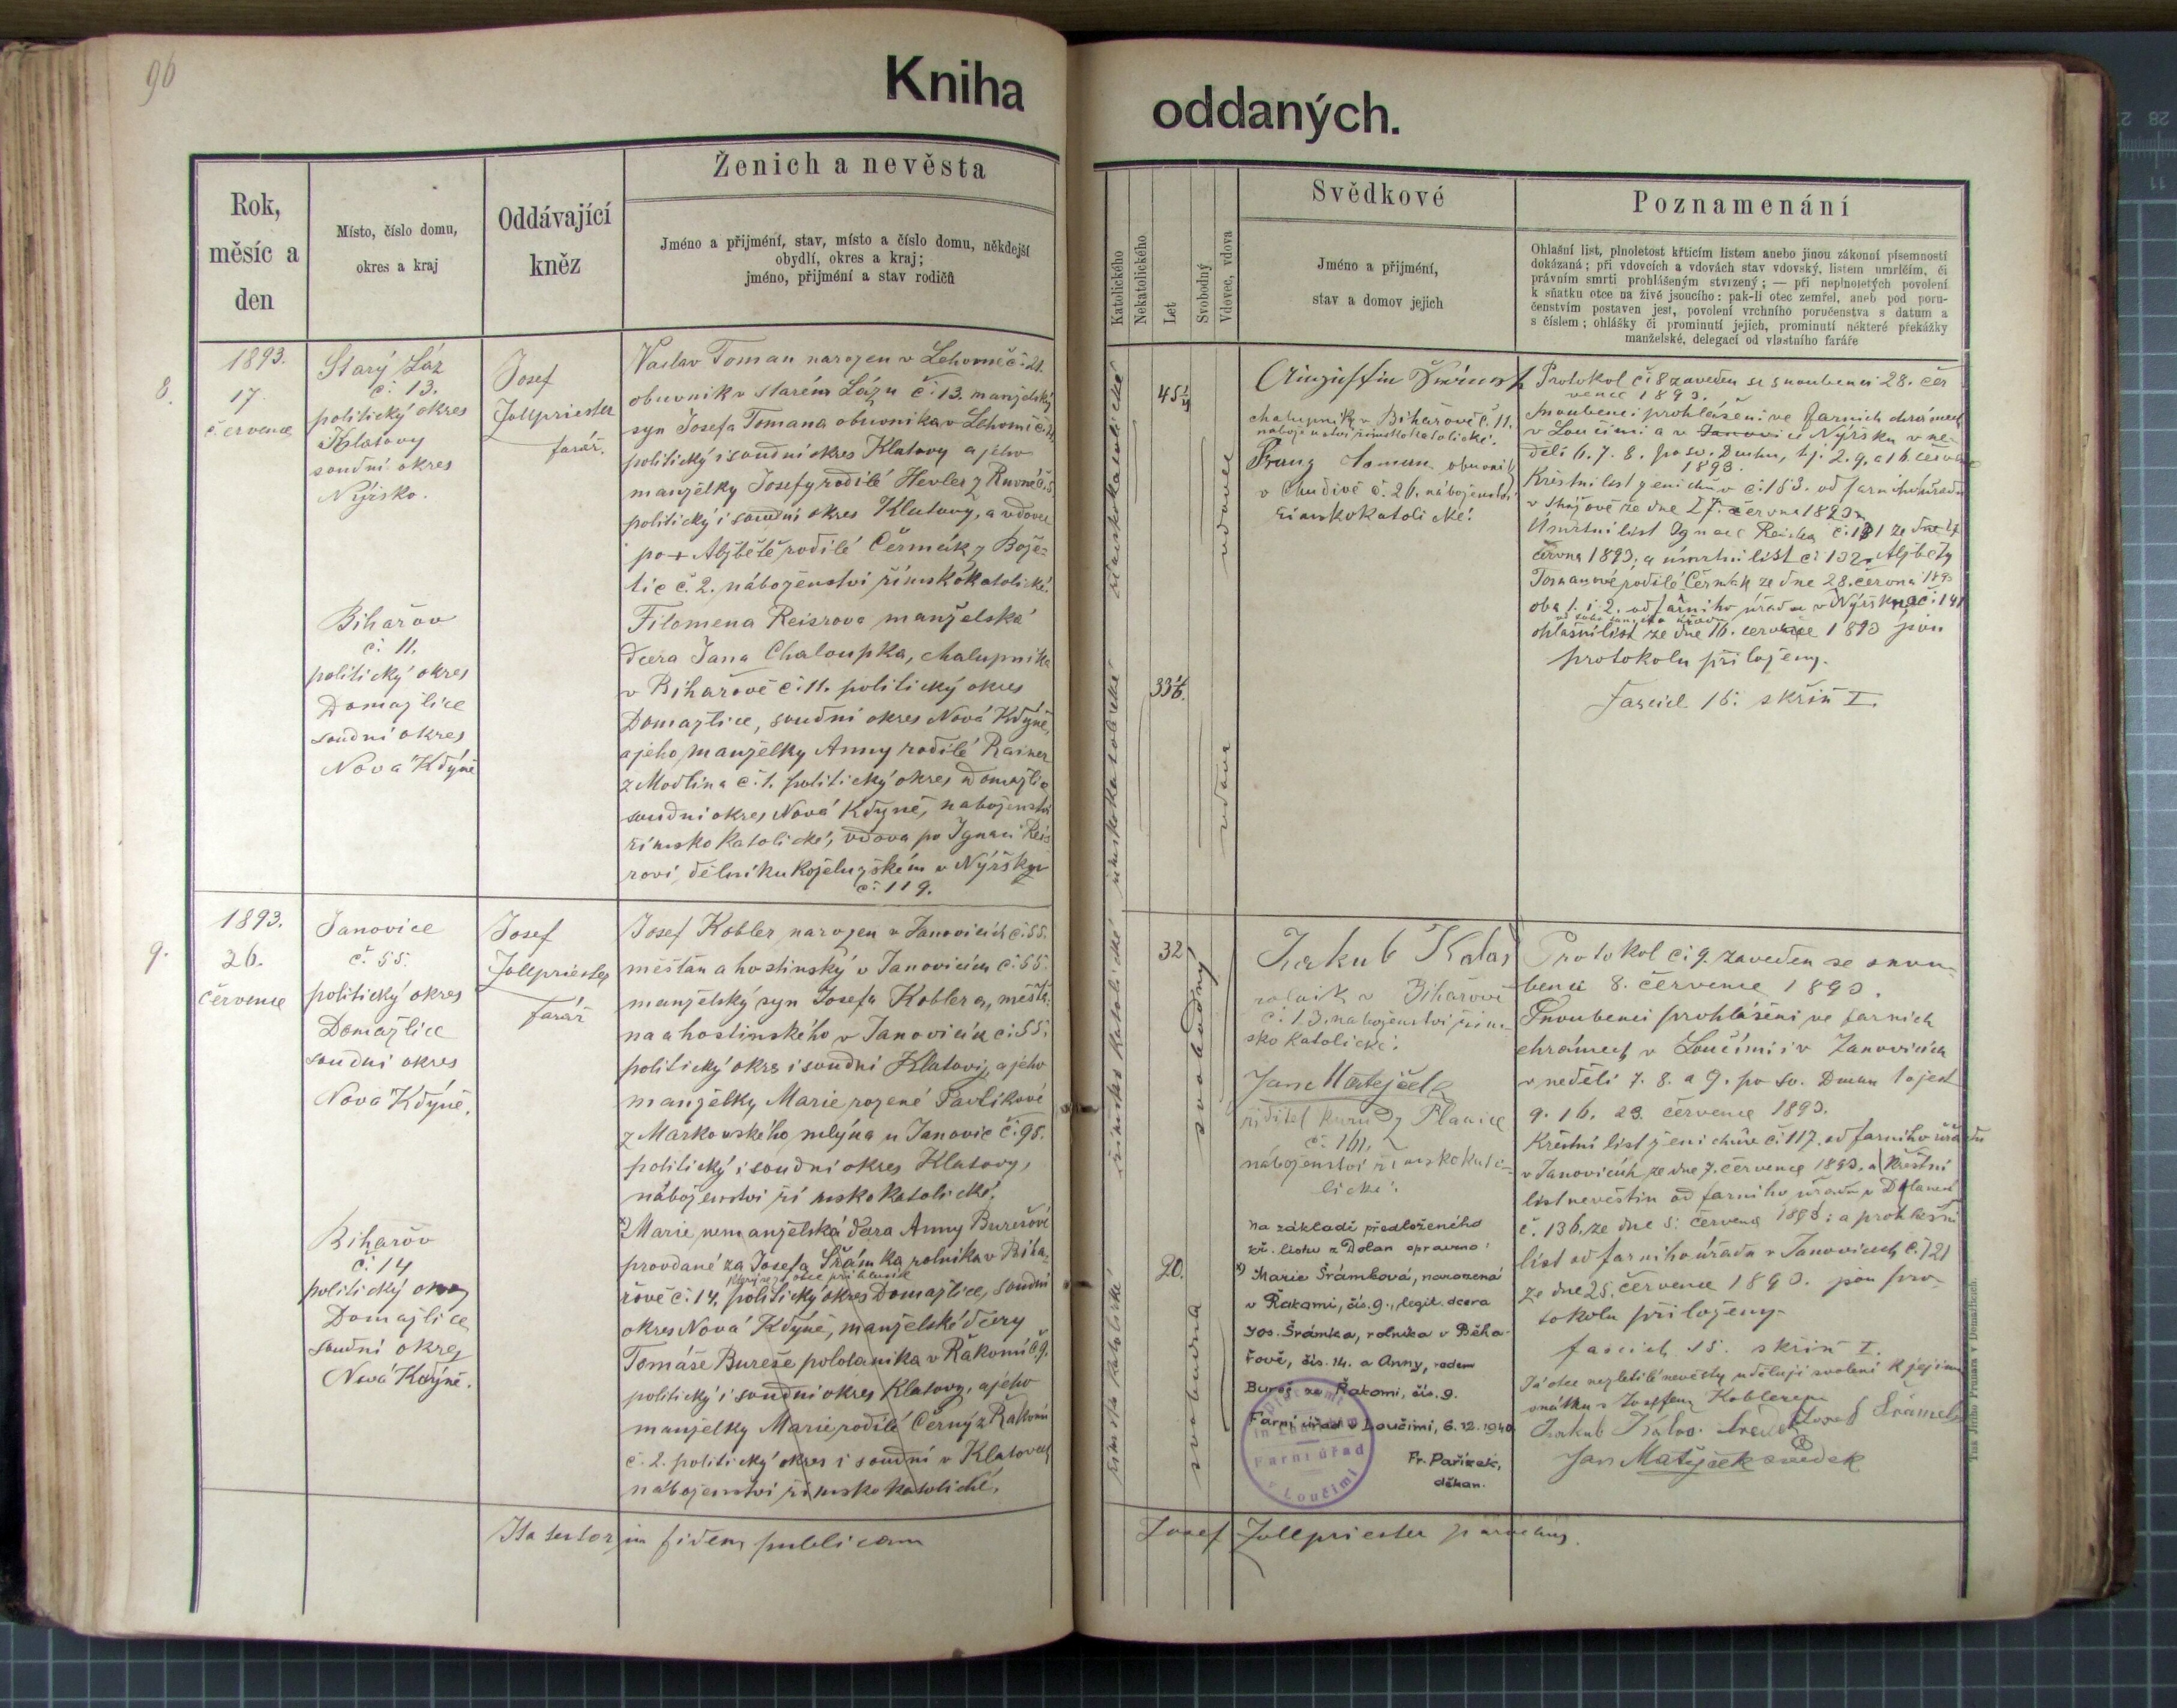 96
Kniha
oddaných.
Rok,
měsíc a
den
Místo, číslo domu,
okres a kraj
Oddávající
kněz
Ženich a nevěsta
Jméno a přijmění, stav, místo a číslo domu, někdejší
obydlí, okres a kraj;
jméno, přijmění a stav rodičů
Katolického
Nekatolického
Let
Svobodný
Vdovec, vdova
Svědkové
Jméno a přijmění,
stav a domov jejich
Poznamenání
Ohlašní list, plnoletost křticím listem anebo jinou zákonní písemností
dokázaná; při vdovcích a vdovách stav vdovský, listem umrlčím, či
právním smrti prohlášeným stvrzený; — při neplnoletých povolení
k sňatku otce na živě jsoucího: pak-li otec zemřel, aneb pod poru-
čenstvím postaven jest, povolení vrchního poručenstva s datum a
s číslem; ohlášky či prominutí jejich, prominutí některé překážky
manželské, delegací od vlastního faráře
8.
1893.
17.
července
Starý Láz
č. 13.
politický okres
Klatovy
soudní okres
Nýrsko.
Josef
Zollpriester
farář.
Vaclav Toman narozen v Lehomě č. 21.
obuvník v starém Lázu č. 13. manželský
syn Josefa Tomana obuvníka v Lehomi č. 21,
politický i soudní okres Klatovy a jeho
manželky Josefy rodilé Hevler z Ruvné č. 5,
politický i soudní okres Klatovy, a vdovec
po + Alžbětě rodilé Čermák z Bože-
tic č. 2. náboženství římskokatolické.
Bihařov
č. 11.
politický okres
Domažlice
soudní okres
Nová Kdýně
Filomena Reisrova manželská
dcera Jana Chaloupka, chalupníka
v Biharově č. 11. politický okres
Domažlice, soudní okres Nová Kdyně,
a jeho manželky Anny rodilé Rainer
z Modlina č. 1. politický okres Domažlice
soudní okres Nová Kdyně, naboženství
římsko katolické, vdova po Ignaci Reis
rovi, dělníku koželužském v Nýrsku
č. 119.
římskokatolické
45¼
vdovec
římskokatolické
33⅙.
vdova
Augustin
chalupník v Biharově č. 11.
naboženství římskokatolické.
Franz Toman obuvník
v Chudivě č. 26. náboženství
římskokatolické.
Protokol č. 8 zaveden se snoubenci 28. čer
vence 1893.
Snoubenci prohlášeni ve farních chrámech
v Loučimi a v Nýrsku v ne-
děli 6. 7. 8. po sv. Duchu, tj. 2. 9. a 16. července
1893.
Křestní list ženichův č. 183. od farního úřadu
ze dne 27. června 1893.
Úmrtní list Ignace Reisra č. 131 ze dne
června 1893, a úmrtní list č. 132. Alžběty
Tomanové rodilé Čermák ze dne 28. června 1893
oba 1. i 2. od farního úřadu v Nýrsku, a č. 141
ohlašní list ze dne 16. července 1893 jsou
protokolu přiloženy.
Fascicl 15. skříň I.
9.
1893.
26.
července
Janovice
č. 55.
politický okres
Domažlice
soudní okres
Nová Kdyně.
Josef
Zollpriester
farář
Josef Kobler narozen v Janovicích č. 55.
měšťan a hostinský v Janovicích č. 55.
manželský syn Josefa Koblera, měšťa-
na a hostinského v Janovicích č. 55.
politický okres i soudní Klatovy, a jeho
manželky Marie rozené Pavlíkové
z Markovského mlýna u Janovic č. 98.
politický i soudní okres Klatovy,
náboženství římskokatolické.
Biharov
č. 14
politický okres
Domažlice
soudní okres
Nová Kdyně.
x) Marie nemanželská dcera Anny Burešové
provdané za Josefa Šrámka rolníka v Biha-
který se za otce přihlásil
řově č. 14, politický okres Domažlice, soudní
okres Nová Kdyně, manželské dcery
Tomáše Bureše pololáníka v Řakomi č. 9.
politický i soudní okres Klatovy, a jeho
manželky Marie rodilé Černý z Řakomi
č. 2. politický okres i soudní v Klatovech
náboženství římskokatolické.
římsko katolické
32
svobodný
římsko katolické
20.
svobodná
Jakub Kalas
rolník v Biharově
č. 13. naboženství řím-
sko katolické.
Jan Matějček
ředitel kůru z Plánice
č. 161,
náboženství římskokato-
lické.
Na základě předloženého
kř. listu z Dolan opraveno:
x) Marie Šrámková, narozená
v Řakomi, čís. 9., legit. dcera
Jos. Šrámka, rolníka v Běha-
řově, čís. 14. a Anny, rodem
Bureš ze Řakomi, čís. 9.
Farní úřad v Loučimi, 6.12.1940
Fr. Pařízek,
děkan.
Farní úřad
v Loučimi
Protokol č. 9. zaveden se snou-
benci 8. července 1893.
Snoubenci prohlášeni ve farních
chrámech v Loučimi i v Janovicích
v neděli 7. 8. a 9. po sv. Duchu to jest
9. 16. 23. července 1893.
Křestní list ženichův č. 117. od farního úřadu
v Janovicích ze dne 7. července 1893, a křestní
list nevěstin od farního úřadu v Dolanech
č. 136, ze dne 5. června 1893; a prohlašní
list od farního úřadu v Janovicích č. 121
ze dne 25. července 1893. jsou pro-
tokolu přiloženy.
fascicl 15. skříň I.
Já otec nezletilé nevěsty uděluji svolení k jejímu
sňátku s Josefem Koblerem
Jakub Kalas. svědek Josef Šrámek
Jan Matějček svědek
Ita testor in fidem publicam
Josef Zollpriester parochus.
Tisk Jiřího Prunara v Domažlicích.